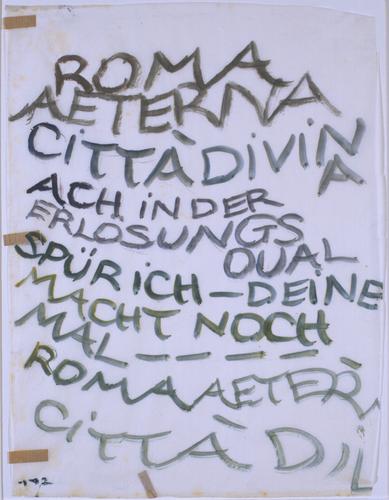 ROMA
AETERNA
CITTÀ DIVIN
A
ACH iN DER
ERLÖSUNGS
QUAL
SPÜR iCH – DEiNE
MACHT NOCH
MAL – – – – –
ROMA AETER
CiTTÀ Di